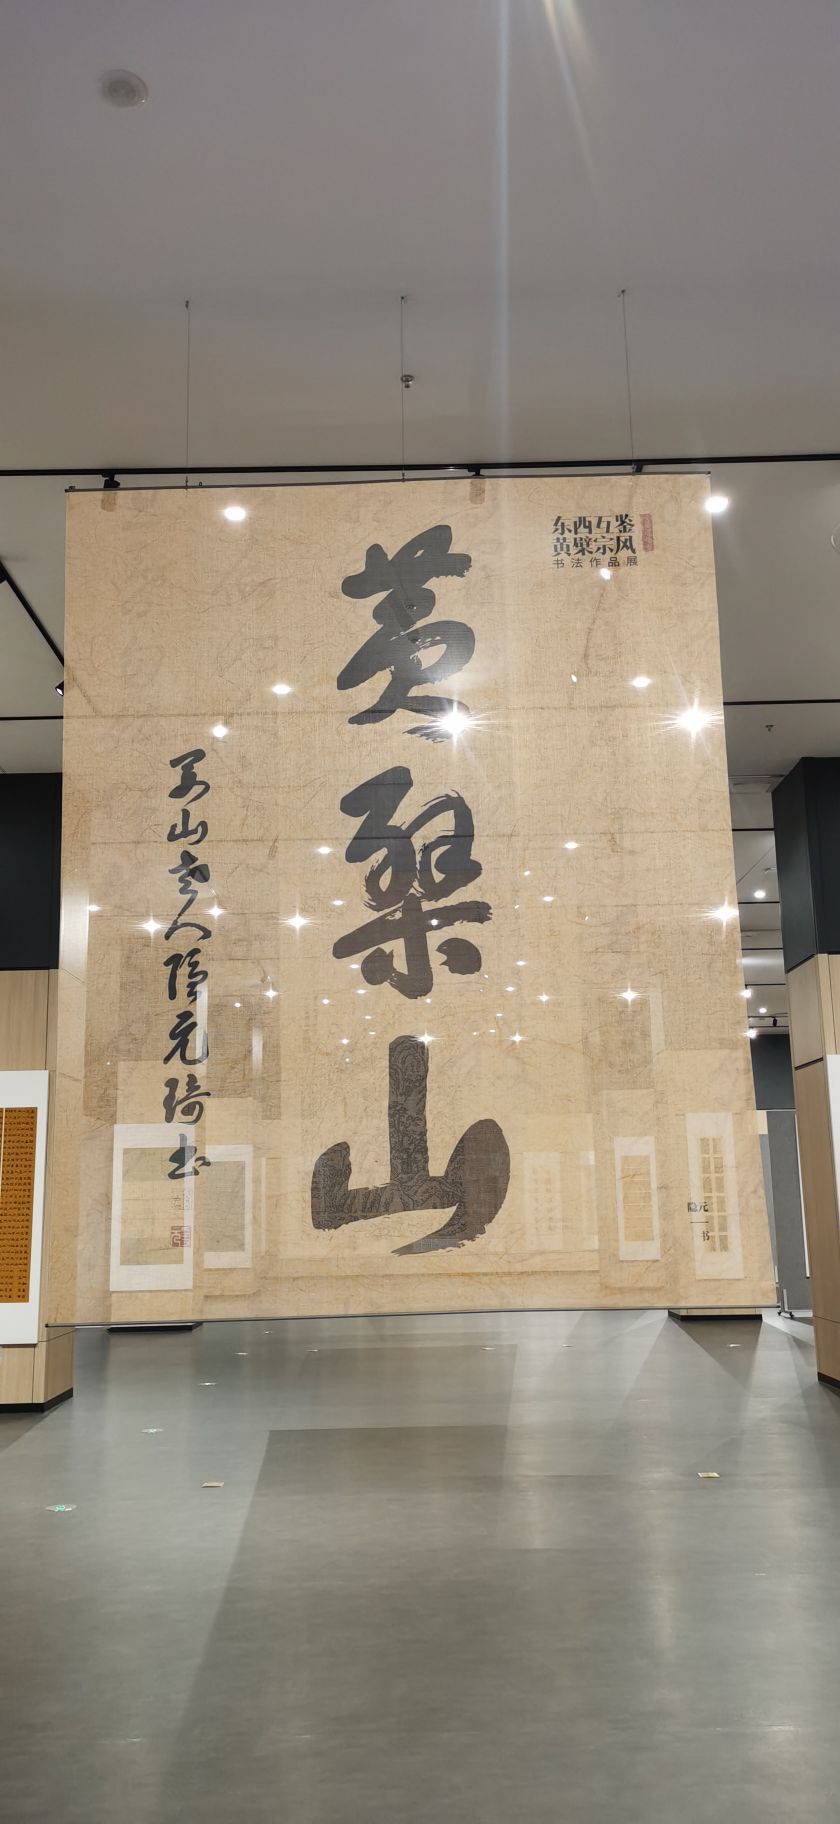 东西互鉴
黄檗宗风
书法作品展
黄檗山
開山老人隱元琦書
隐元
书